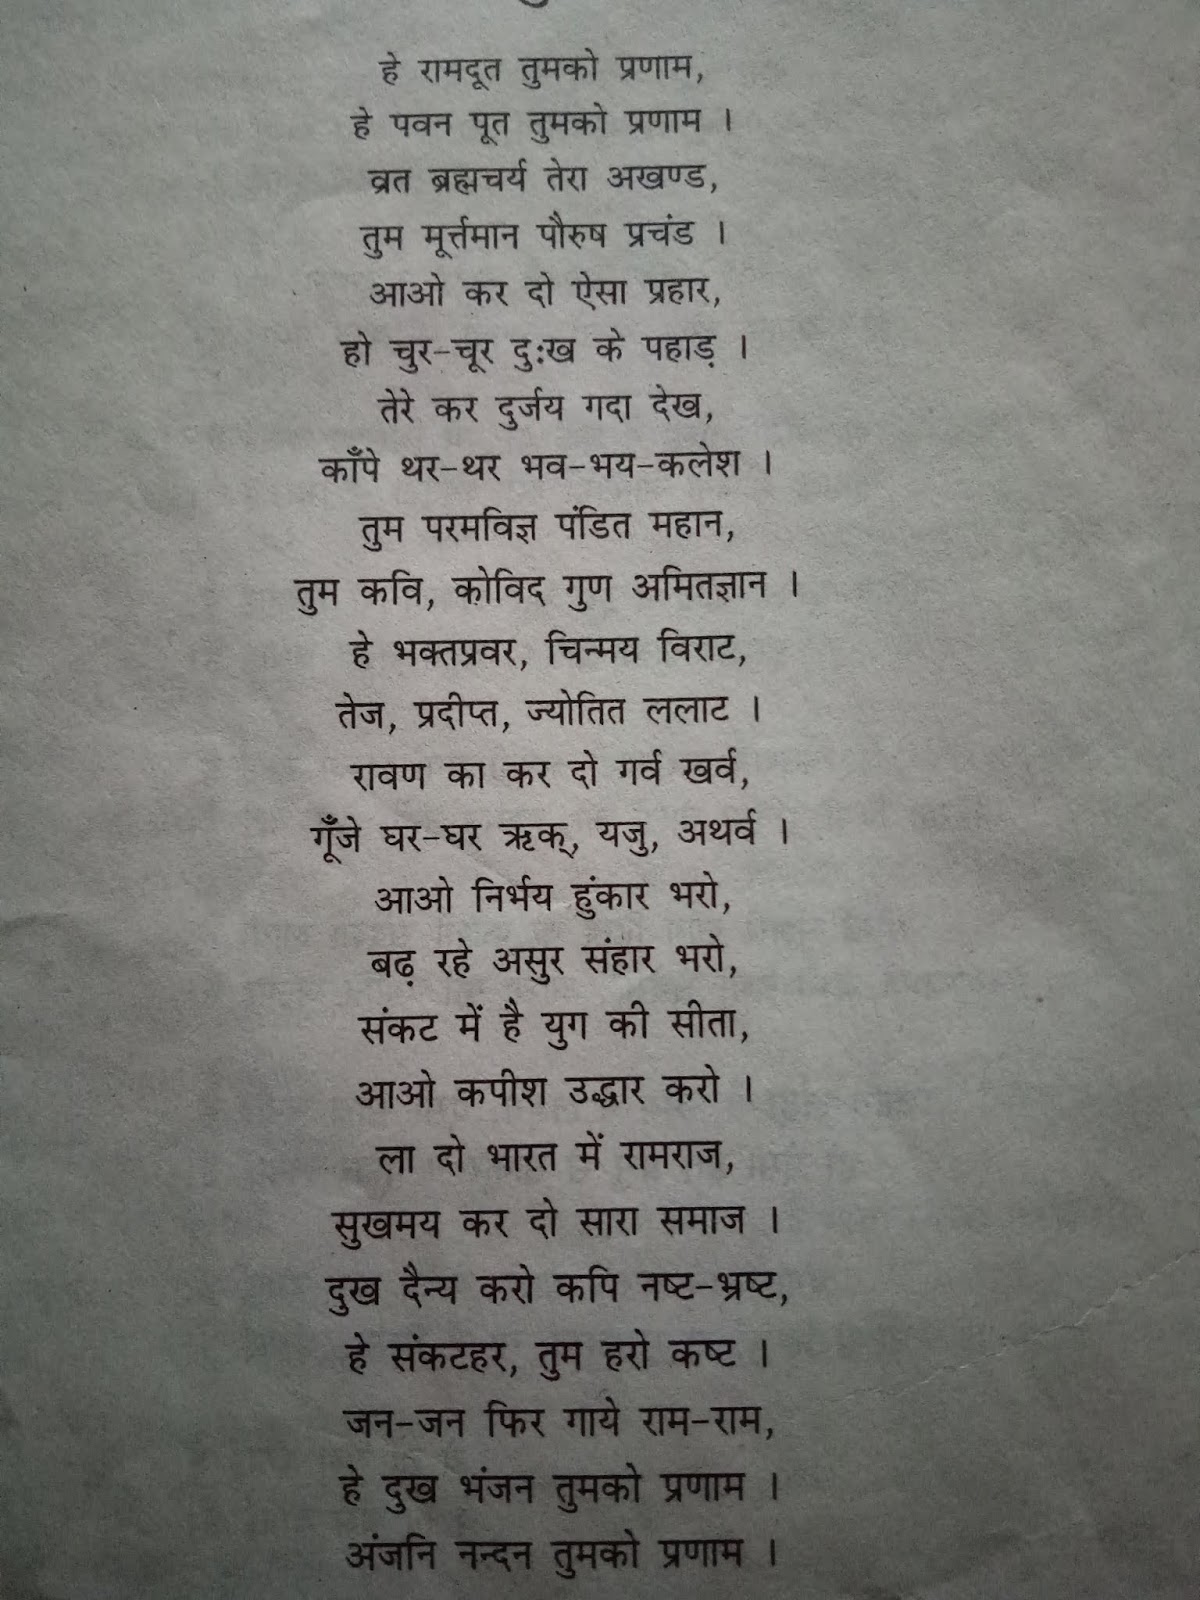 हे रामदूत तुमको प्रणाम,
हे पवन पूत तुमको प्रणाम ।
व्रत ब्रह्मचर्य तेरा अखण्ड,
तुम मूर्त्तमान पौरुष प्रचंड ।
आओ कर दो ऐसा प्रहार,
हो चुर-चूर दुःख के पहाड़ ।
तेरे कर दुर्जय गदा देख,
काँपे थर-थर भव-भय-कलेश ।
तुम परमविज्ञ पंडित महान,
तुम कवि, कोविद गुण अमितज्ञान ।
हे भक्तप्रवर, चिन्मय विराट,
तेज, प्रदीप्त, ज्योतित ललाट ।
रावण का कर दो गर्व खर्व,
गूँजे घर-घर ऋक्, यजु, अथर्व ।
आओ निर्भय हुंकार भरो,
बढ़ रहे असुर संहार भरो,
संकट में है युग की सीता,
आओ कपीश उद्धार करो ।
ला दो भारत में रामराज,
सुखमय कर दो सारा समाज ।
दुख दैन्य करो कपि नष्ट-भ्रष्ट,
हे संकटहर, तुम हरो कष्ट ।
जन-जन फिर गाये राम-राम,
हे दुख भंजन तुमको प्रणाम ।
अंजनि नन्दन तुमको प्रणाम ।